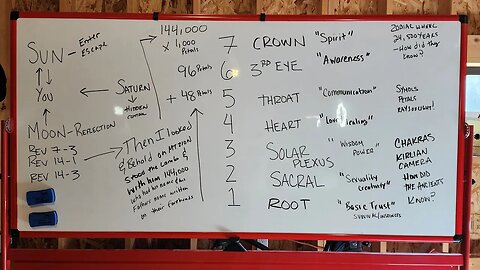 SUN - Enter
Escape
You
MOON - REJECTION
REV 7-3
REV 14-1
REV 14-3
SATURN
Hidden
Then I looked
& Behold on Mt ZION
Stood the Lamb &
With him 144,000
who had his name & his
Fathers name written
on their foreheads
144,000
x 1,000
Petals
96 Petals
+ 48 Petals
7 CROWN "Spirit"
6 3RD EYE "Awareness"
5 THROAT "Communication"
4 HEART "Love Healing"
3 SOLAR PLEXUS "WISDOM POWER"
2 SACRAL "Sexuality Creativity"
1 ROOT "Basic Trust"
ZODIAC WHEEL
YEARS
- How did they
Know?
SYMBOLS
PETALS
CHAKRAS
KIRLIAN
CAMERA
HOW DID
THE ANCIENTS
KNOW?